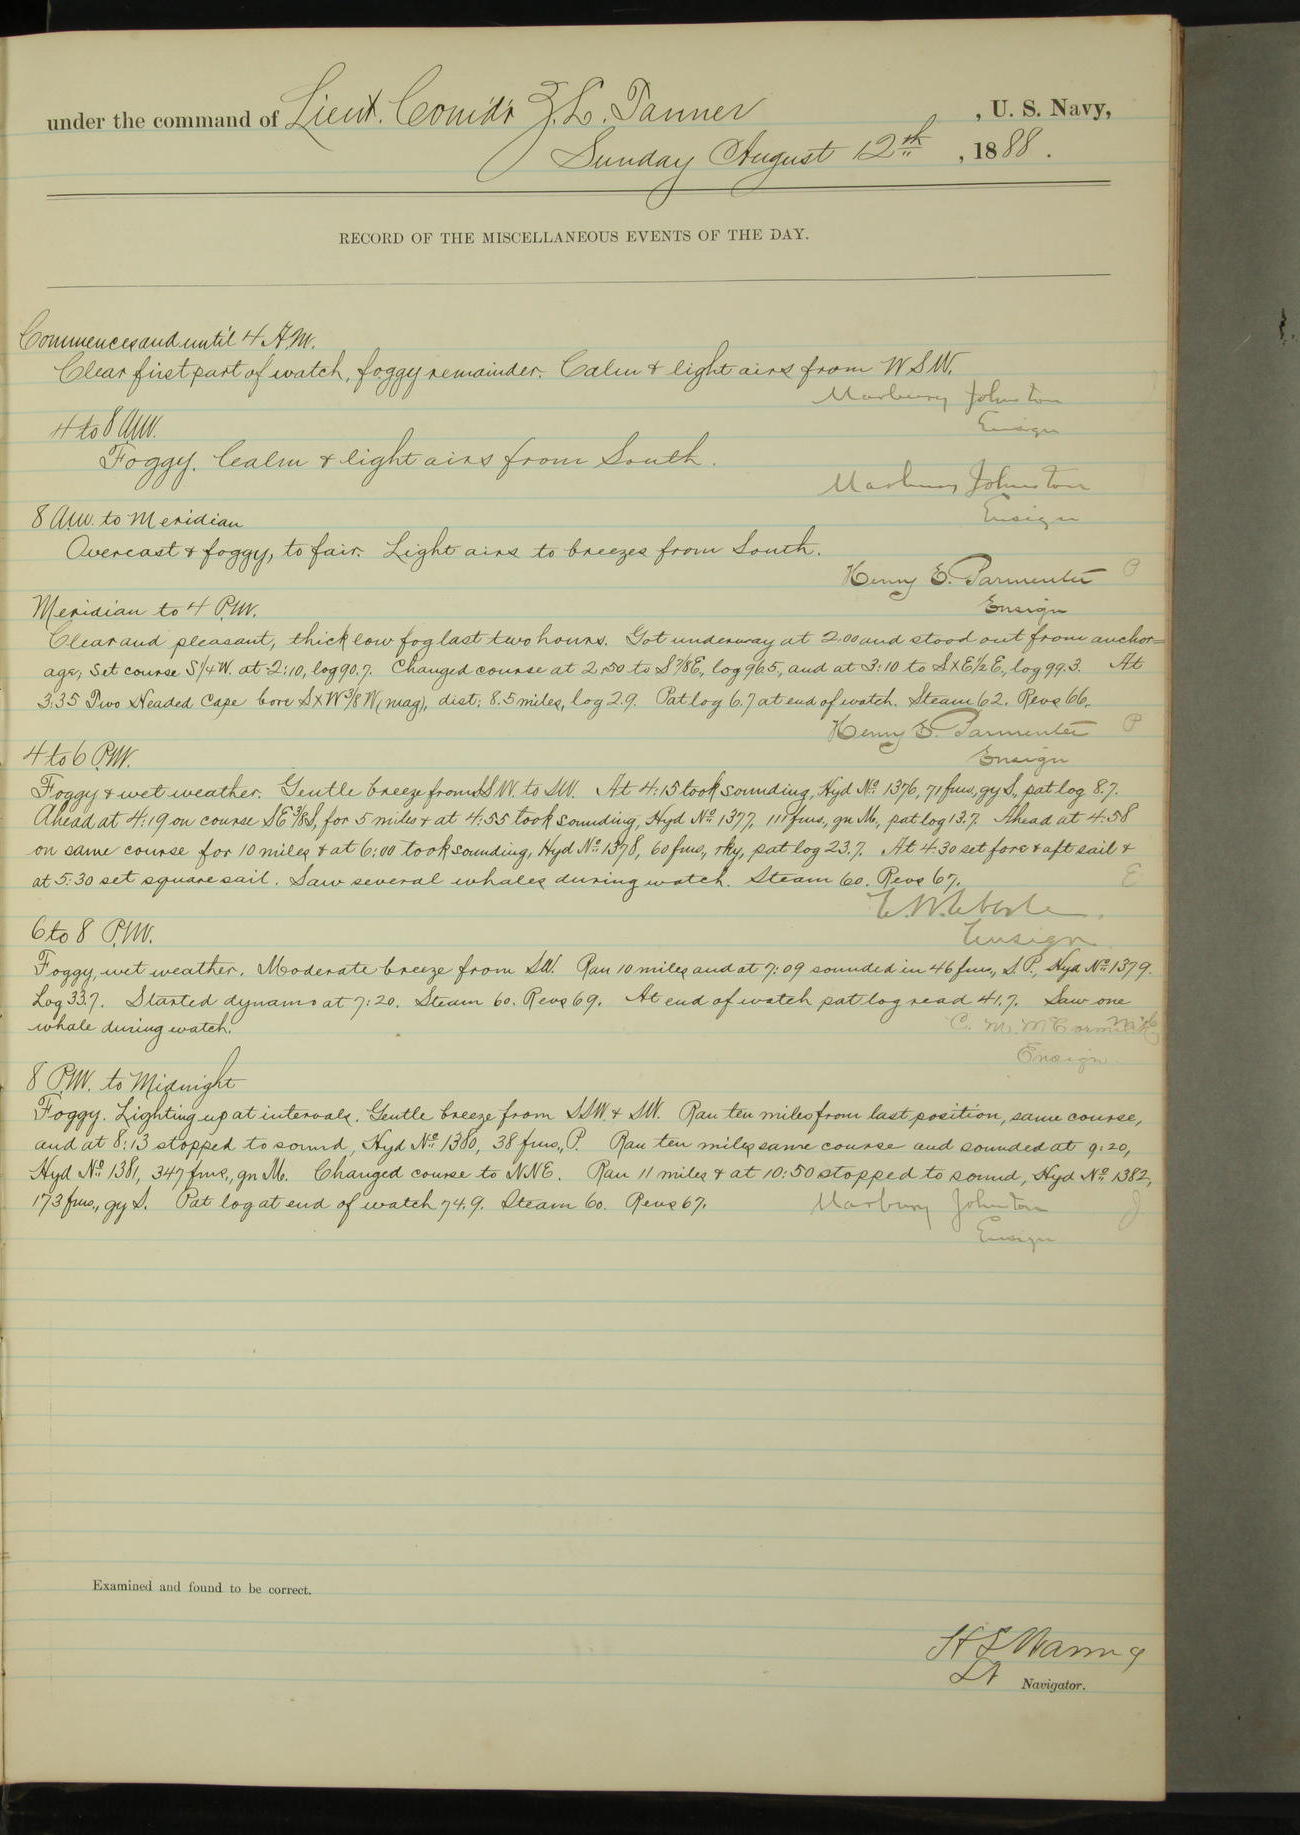 under the command of Lieut. Comdr Z. L. Tanner, U. S. Navy,
Sunday August 12th, 1888.
RECORD OF THE MISCELLANEOUS EVENTS OF THE DAY.
Commences and until 4 A.M.
Clear first part of watch, foggy remainder. Calm & light airs from WSW.
Marbury Johnston
Ensign
4 to 8 A.M.
Foggy. Calm & light airs from South.
Marbury Johnston
Ensign
8 A.M. to Meridian
Overcast & foggy, to fair. Light airs to breezes from South.
Henry E. Parmenter P
Ensign
Meridian to 4 P.M.
Clear and pleasant, thick low fog last two hours. Got underway at 2:00 and stood out from anchor=
age; Set course S 1/4 W. at 2:10, log 90.7. Changed course at 2:50 to S 7/8 E, log 96.5, and at 3:10 to SxE 1/2 E, log 99.3. At
3:35 Two Headed Cape bore SxW 3/8 W (mag), dist; 8.5 miles, log 2.9. Pat log 6.7 at end of watch. Steam 62. Revs 66.
Henry E. Parmenter P
Ensign
4 to 6 P.M.
Foggy & wet weather. Gentle breeze from SSW. to SW. At 4:15 took sounding, Hyd No 1376, 71 fms, gy S, pat log 8.7.
Ahead at 4:19 on course SE 3/8 S, for 5 miles & at 4:55 took sounding, Hyd No 1377, 111 fms., gn M., pat log 13.7. Ahead at 4:58
on same course for 10 miles & at 6:00 took sounding, Hyd No 1378, 60 fms., rky, pat log 23.7. At 4:30 set fore & aft sail &
at 5:30 set square sail. Saw several whales during watch. Steam 60. Revs 67. E
E. W. Eberle.
Ensign
6 to 8 P.M.
Foggy, wet weather. Moderate breeze from SW. Ran 10 miles and at 7:09 sounded in 46 fms, S. P., Hyd No 1379.
Log 33.7. Started dynamo at 7:20. Steam 60. Revs 69. At end of watch pat log read 41.7. Saw one
whale during watch. C. M. McCormick
Ensign
8 P.M. to Midnight
Foggy. Lighting up at intervals. Gentle breeze from SSW & SW. Ran ten miles from last position, same course,
and at 8:13 stopped to sound, Hyd No 1380, 38 fms., P. Ran ten miles same course and sounded at 9:20,
Hyd No 1381, 347 fms, gn M. Changed course to NNE. Ran 11 miles & at 10:50 stopped to sound, Hyd No 1382,
173 fms., gy S. Pat log at end of watch 74.9. Steam 60. Revs 67. Marbury Johnston J
Ensign
Examined and found to be correct.
H S Waring
Lt Navigator.